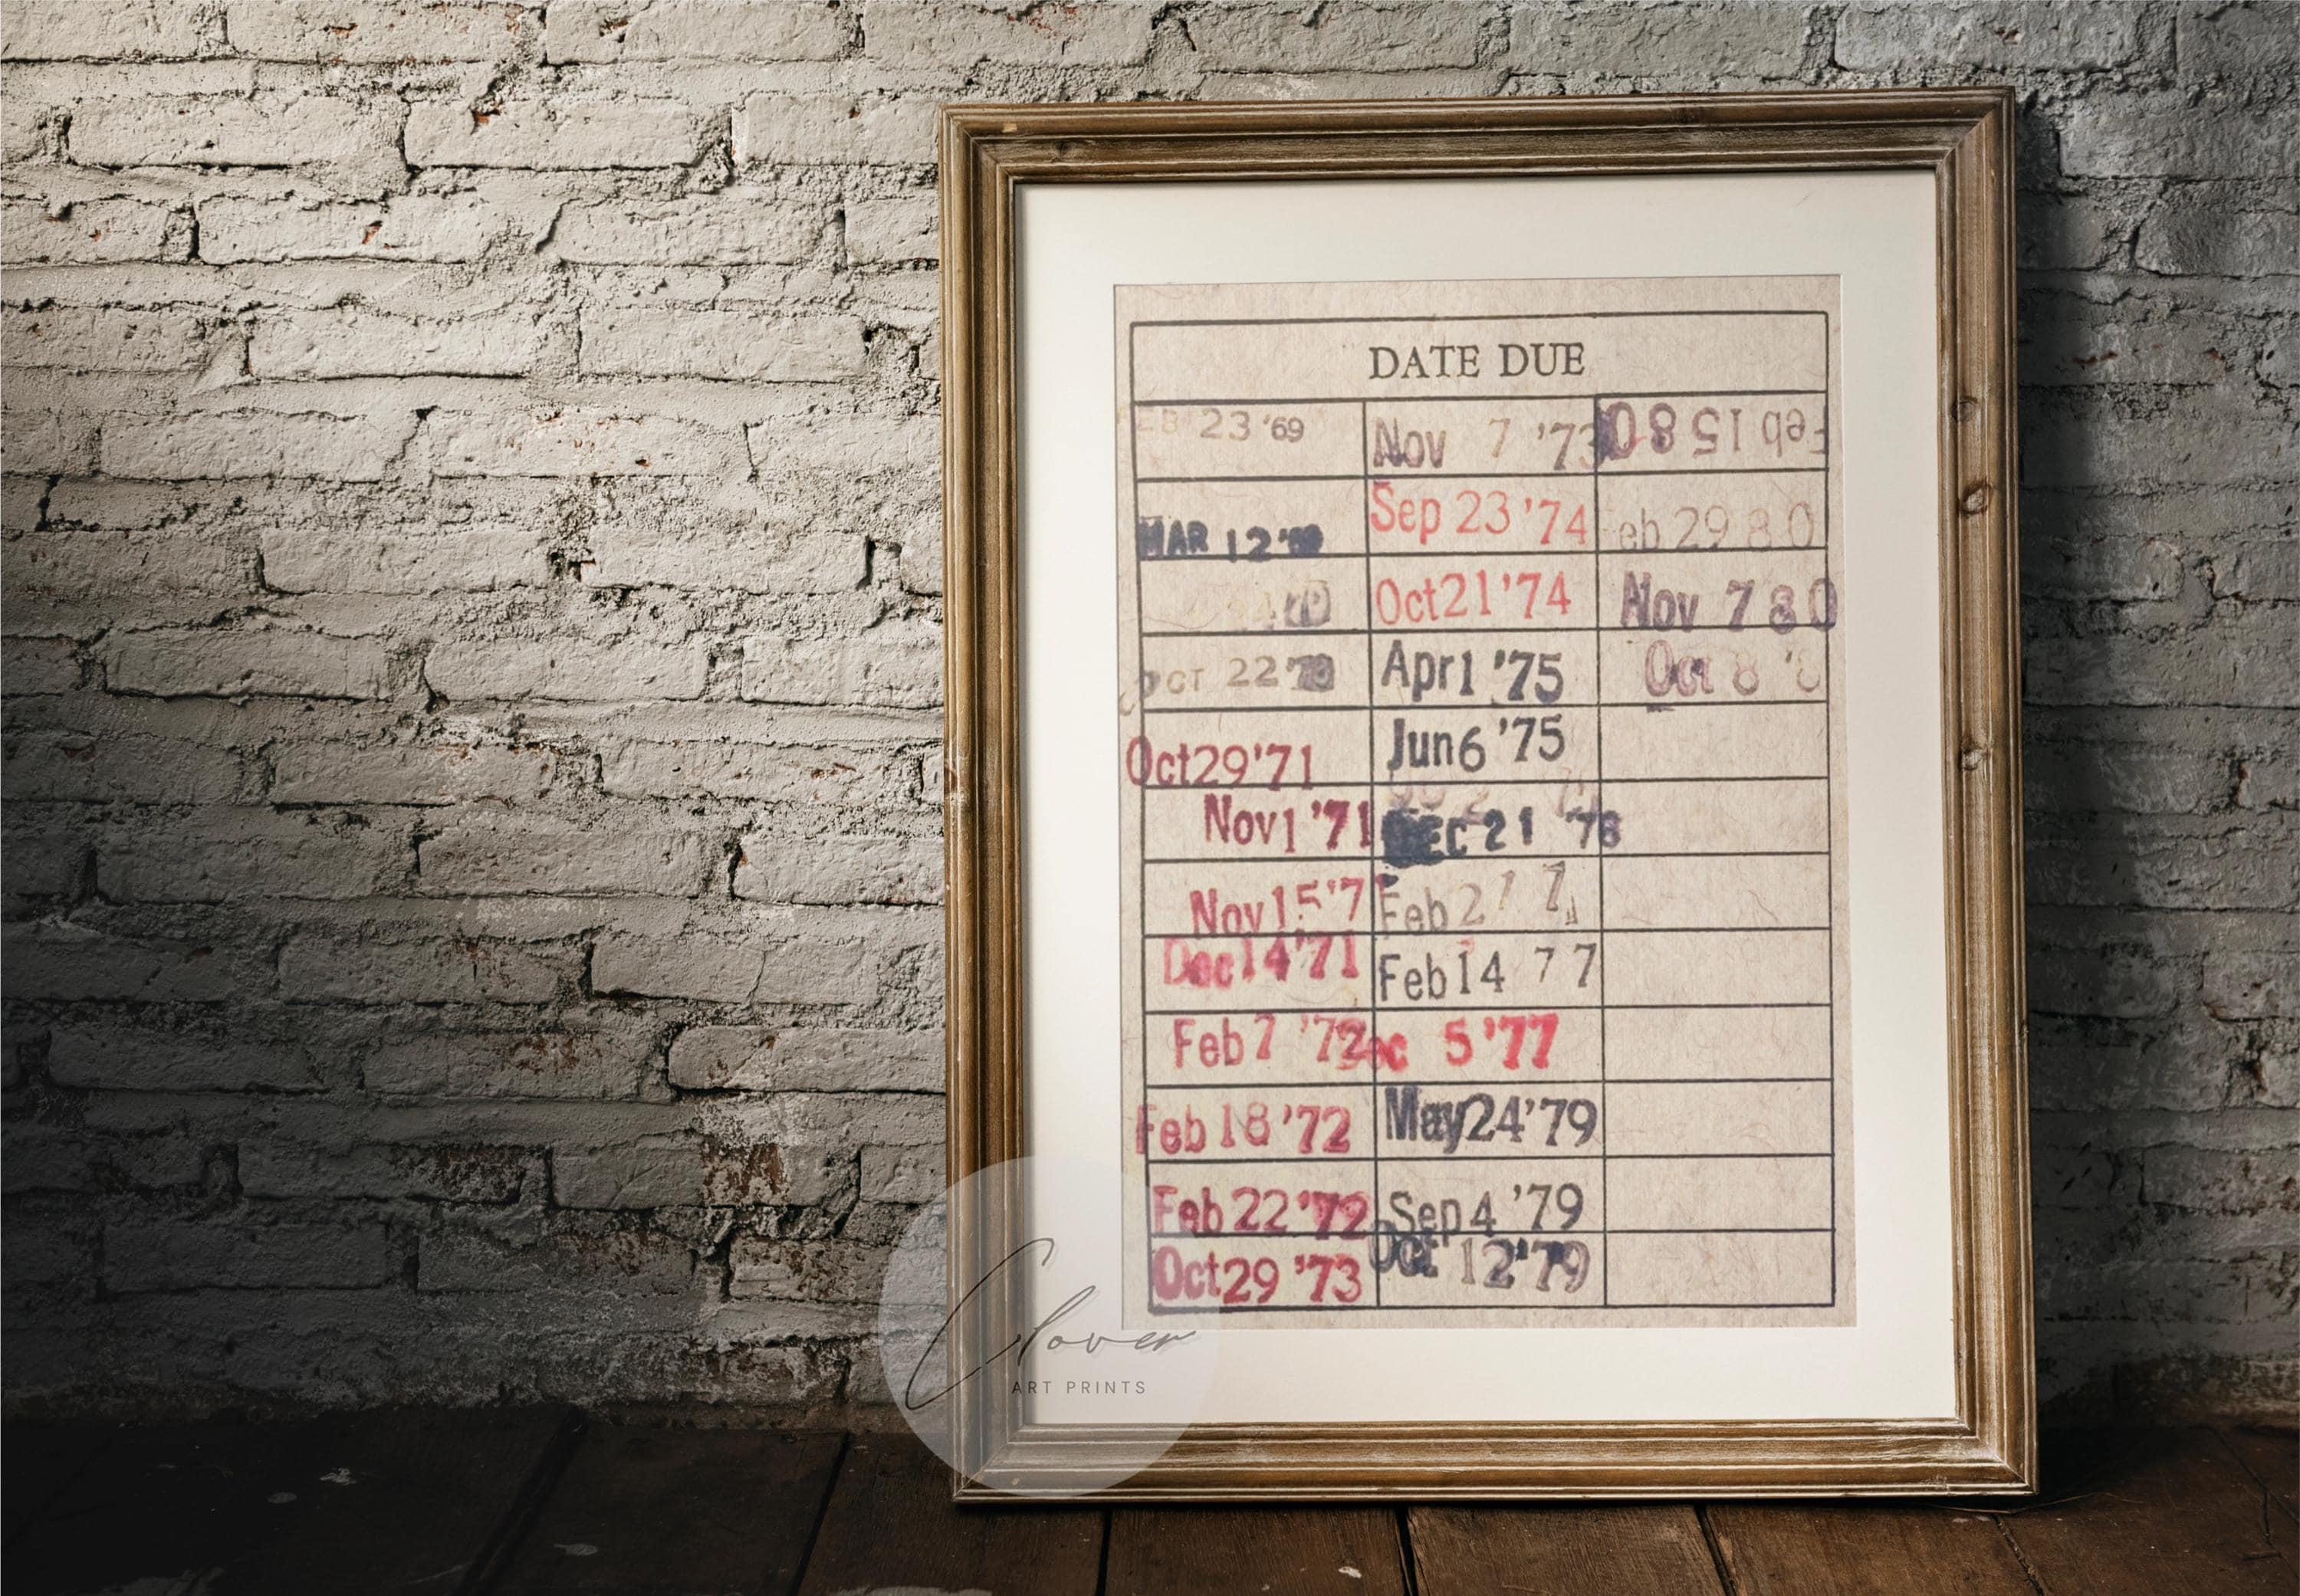 DATE DUE
23 '69
MAR 12
OCT 22 '70
Oct29'71
Nov1 '71
Nov15'7
Dec14'71
Feb7 '72
Feb18'72
Feb22'72
Oct29 '73
Nov 7 '73
Sep23'74
Oct21'74
Apr1 '75
Jun6 '75
DEC 21 '76
Feb
Feb14 77
5'77
May24'79
Sep4 '79
Oct 12'79
Feb 15 80
eb 29 80
Nov 7 80
Oct 8
Clover
ART PRINTS